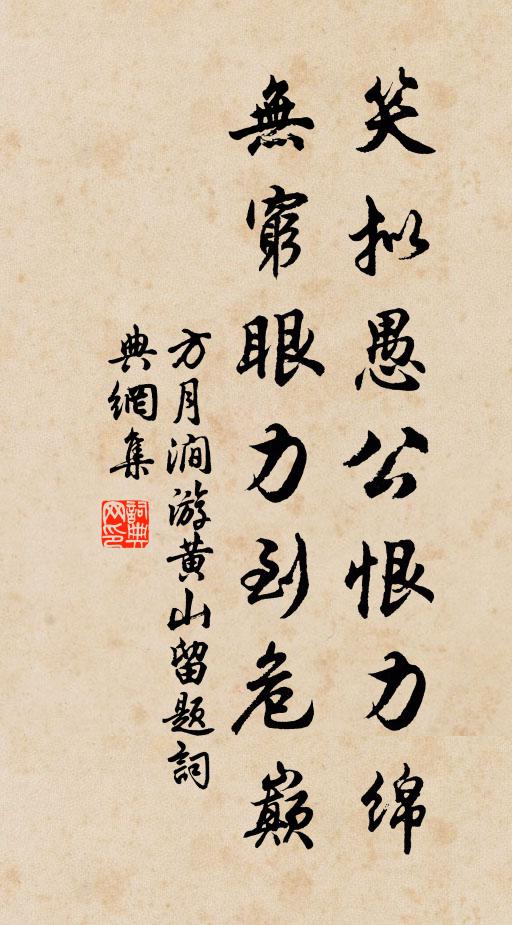 笑拟愚公恨力綿
無窮眼力到危巔
方月澗游黄山留题詞
典網集
詞典网印